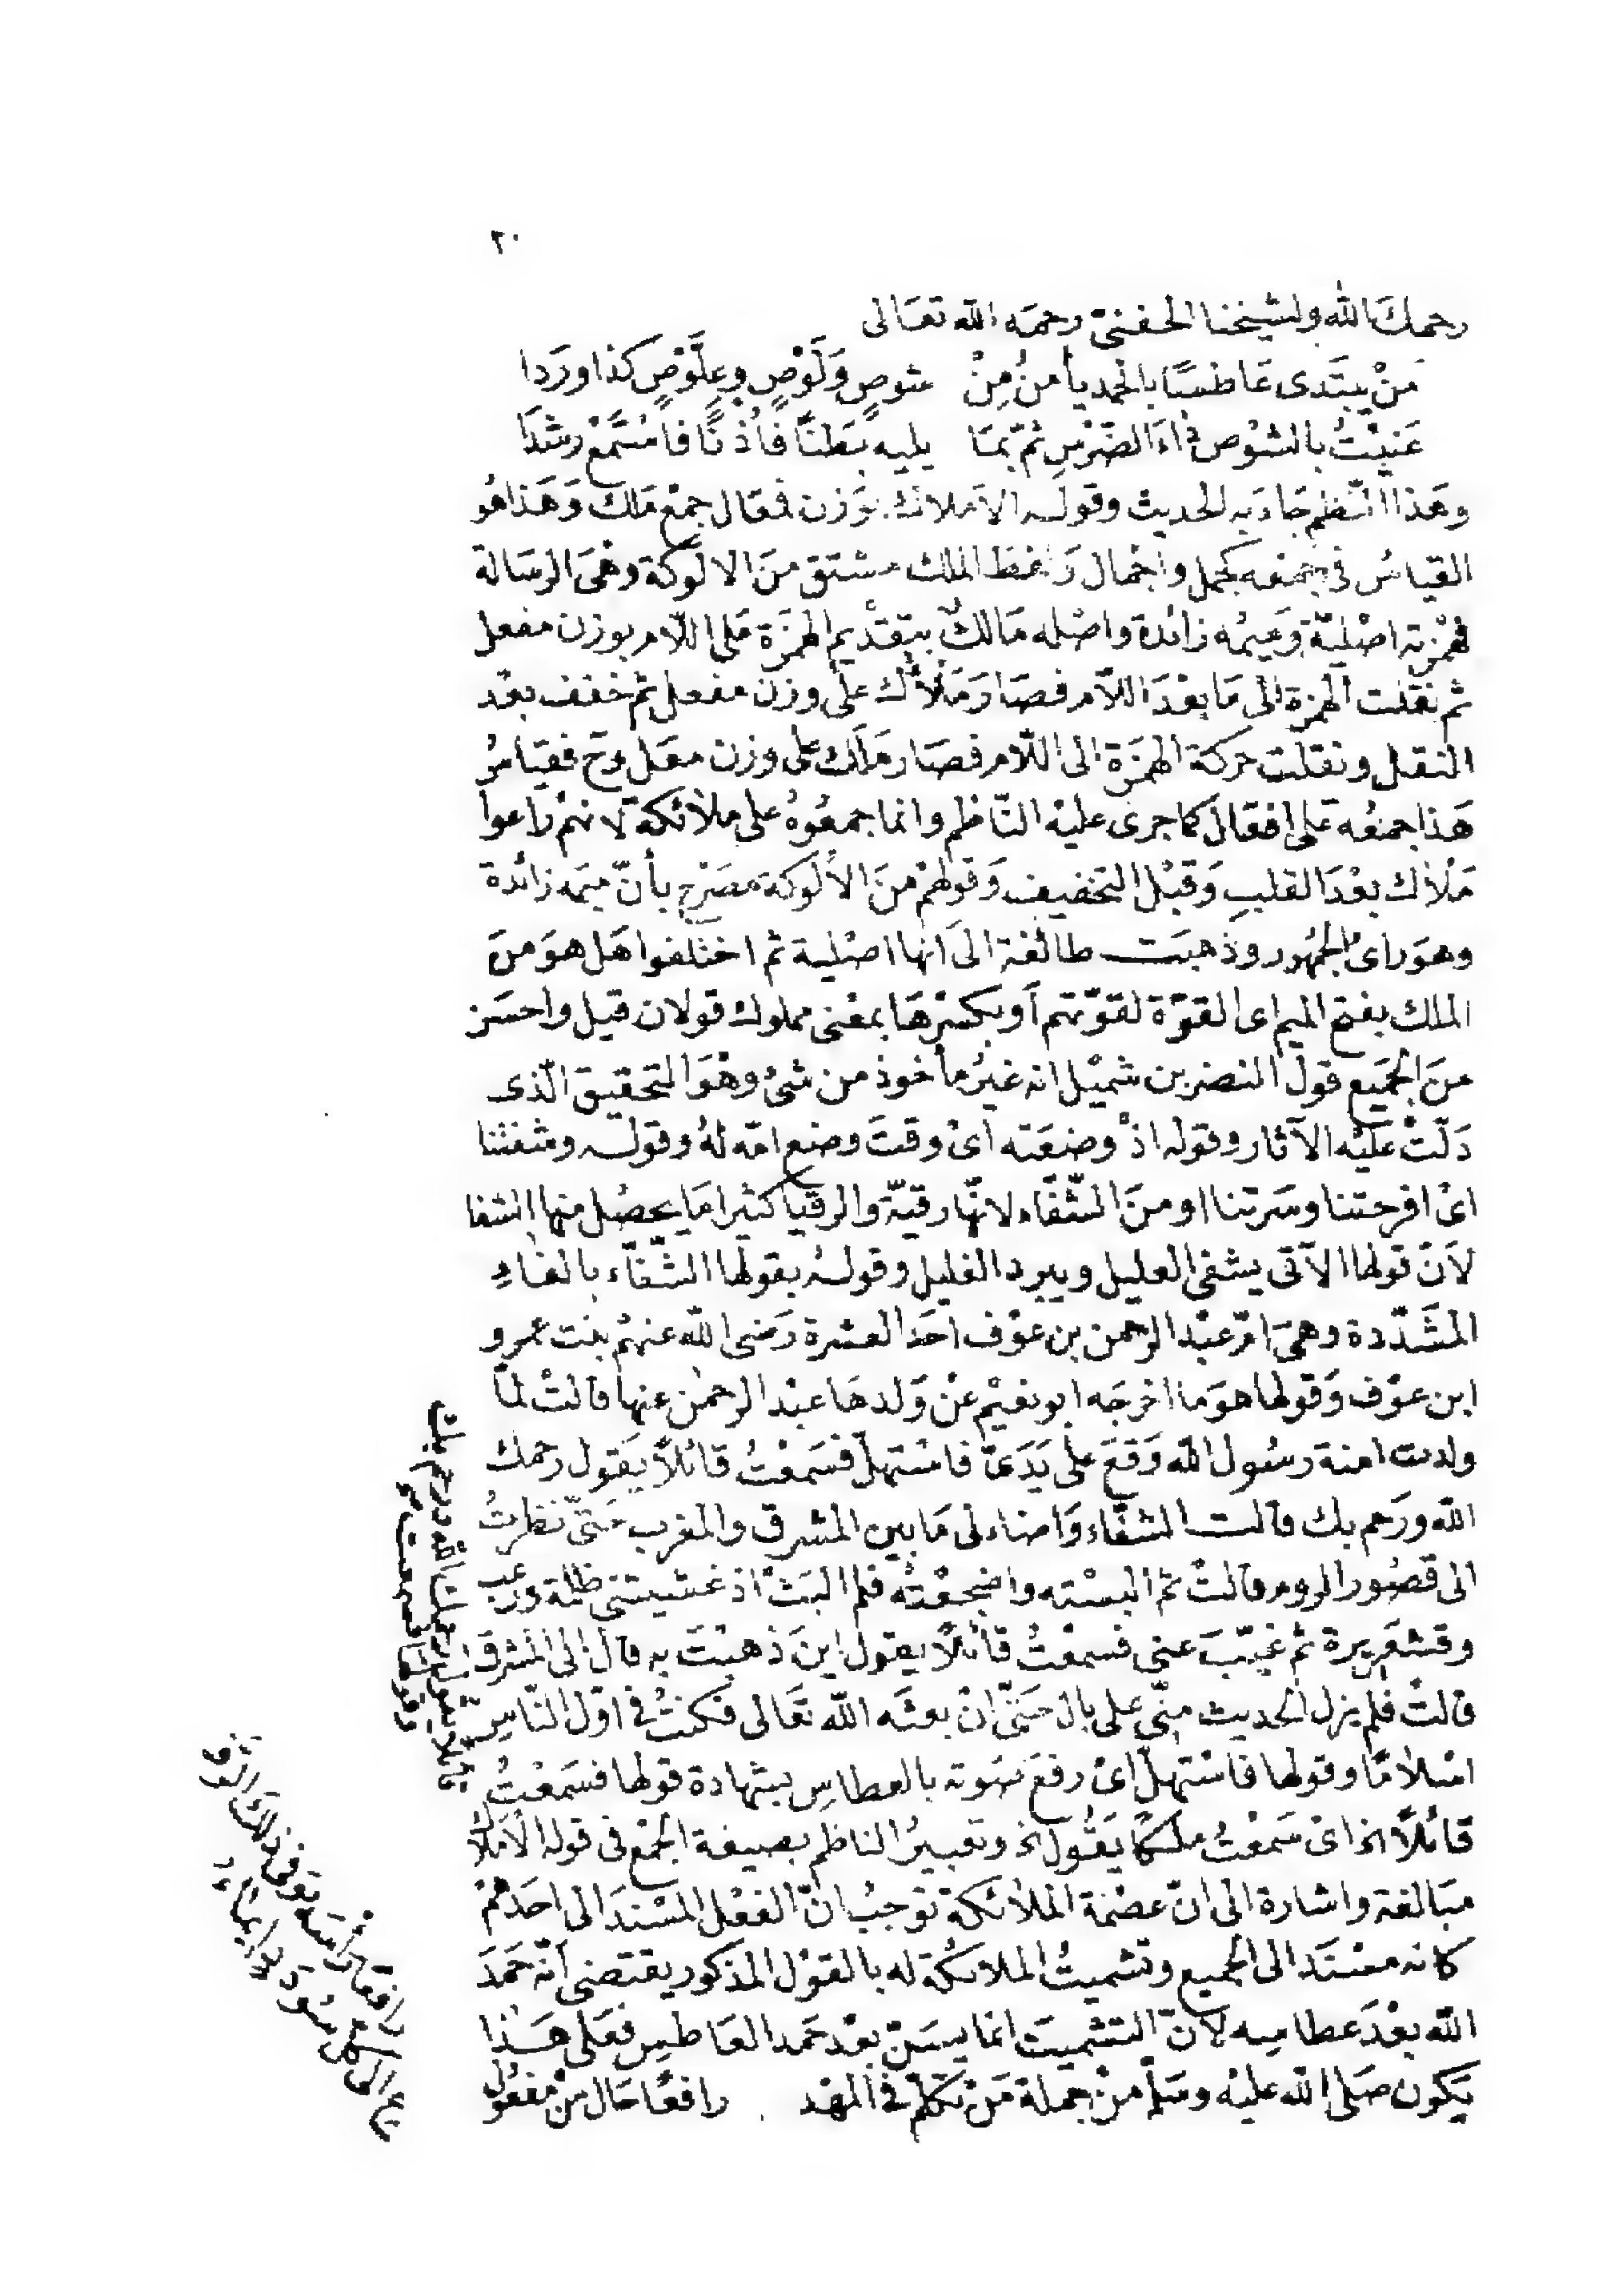 ٢٠
رحمك الله ولشيخنا الحفنى رحمه الله تعالى
مَنْ يبتَدى عَاطسًا بالحمد يأمنُ مِنْ شوصٍ وَلَوْصٍ وعِلَّوْصٍ كذا ورَدا
عَنيْتُ بالشوْص داءَ الضّرْسِ ثمّ بمَا يليه بَطنًا فأذنًا فاسْتمعْ رشدَا
وهَذا النّظم جَاءَ به الحديث وقوله الاملاك بوَزن افعَال جمع مَلك وَهَذا هُو
القياسُ فى جمْعه كجمل واجْمال وَلفظ الملك مشتق منَ الالوكة وهْىَ الرسَالة
فهمْزته اصْليّة وَميمُه زائدة واصْله مَالك بتقدْيم الهمزَة عَلى اللّام بوزن مفعل
ثم نقلت الهمزة الى مَا بعْدَ اللّام فصَارَ مَلْأَك على وزن مفعل ثم خفف بعْد
النقل ونقلت حركة الهمزَة الى اللّام فصَار مَلَك على وزن معَل وح فقيَاسُ
هَذا جمعُه عَلى افعَال كما جرى عليْه النّاظم وانما جمعُوهُ على ملائكة لانهُم راعوا
مَلْأك بعْدَ القلبِ وَقبْل التخفيف وَقولهمْ منَ الألوكة مصَرّح بأنّ ميمَه زائدة
وهوَ رأىُ الجمهُور وذهبَت طائفة الى اَنها اصْلية ثم اختلفوا هَل هوَ منَ
الملك بفتح الميم اى القوّة لقوّتهم أو بكسْرهَا بمعْنى مملوك قولان قيل واحسَن
منَ الجميَع قول النضر بن شميْل انه غيرُ مأخوذ من شئ وهْوَ التحقيق الّذى
دَلّتْ عَليْه الآثار وقوله اذْ وضعَته اىْ وقتَ وضع امّه لهُ وقوله وشفتنا
اىْ افرحتنا وسَرتنا او منَ الشّفَاء لانّها رقيّة والرقيا كثيرا مَا يحصُل منها الشفا
لأنّ قولها الآتى يشفى العليل ويبرد الغليل وقولهُ بقولها الشّفّاء بالفاءِ
المشَدّدة وهىَ امّ عبْد الرحمن بن عوْف احَد العشرة رَضى الله عنهُم بنت عمرو
ابن عوْف وَقولها هوَ ما اخرجَه ابو نعيْم عنْ وَلدهَا عبْد الرحمٰن عنها قالتْ لمّا
ولدت امنة رسُول الله وَقعَ على يَدَىّ فاسْتهلّ فسَمعْتُ قائلاً يقول رحمك
الله ورَحم بك قالت الشفّاء وَاضاء لى مَا بين المشرق والمغرب حَتىّ نظرتُ
الى قصُور الروم قالتْ ثم البسْته واضجعْته فلم البَثْ اذ غشيتنى ظلمة ورعب
وقشعَريرة ثم غيّبَ عنى فسمعْتُ قائلاً يقول اينَ ذهبْتَ به قال الى المشرق
قالتْ فلم يزل الحديث منّى على بال حَتىّ انْ بعثَه الله تعَالى فكنتُ فى اوّل النّاسِ
اسْلامًا وقولها فاسْتهلّ اىْ رفعَ صَوته بالعطاسِ بشهادة قولها فسَمعْتُ
قائلاً الخ اىْ سَمعْتُ ملكًا يَقُول الخ وتعبيرُ الناظم بصيغة الجمْع فى قوله الأملاك
مبَالغة واشارة الى انّ عصْمة الملائكة توجبُ انّ الفعْل المسْندَ الى احَدهمْ
كانه مسْندَ الى الجميع وتشميتُ الملائكة له بالقوْل المذكور يقتضى اَنّه حَمدَ
الله بعْدَ عطاسِه لأنّ التشميتَ انما يسَنّ بعْد حَمد العَاطسِ فعَلى هَذا
يَكون صَلى الله عليْه وسَلّم منْ جملة مَنْ تكلّمَ فى المهْد رافعًا حَال منْ مفعُول
قائلاً يقول رحمك الله ورحم بك
وقولها فسمعت صح
رافعًا رَاسَه وَفى ذلك الرفـ
ـع الى كل سُودَد ايماء